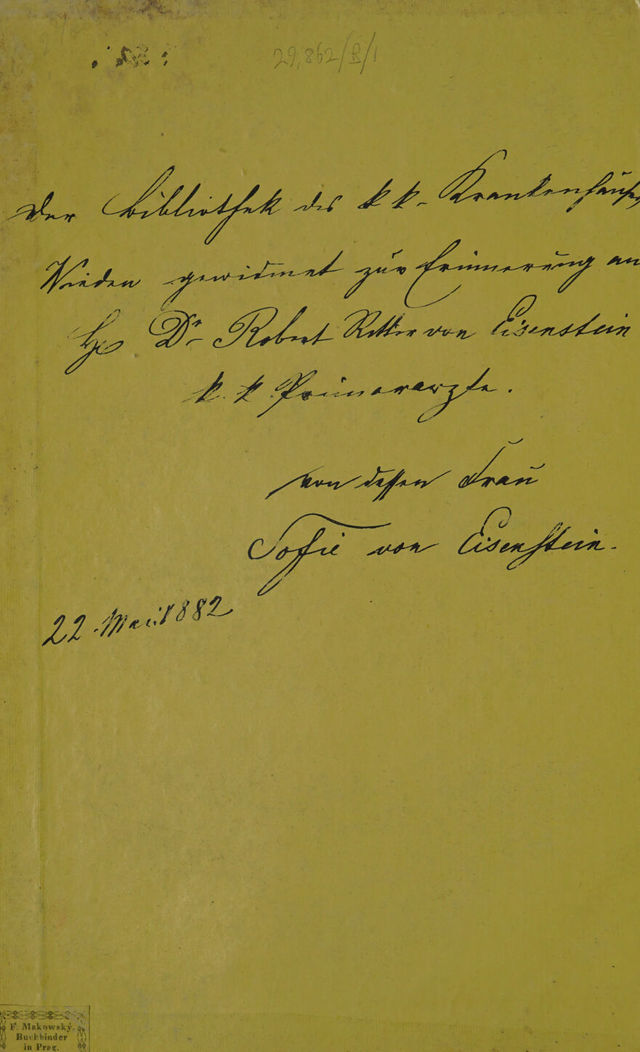 29,862/B/1
Der Bibliothek des k k. Krankenhauses
Wieden gewidmet zur Erinnerung an
H Dr Robert Ritter von Eisenstein
k. k. Primararzte.
von dessen Frau
Sofie von Eisenstein.
22. Mai 1882
F. Makowský.
Buchbinder
in Prag.